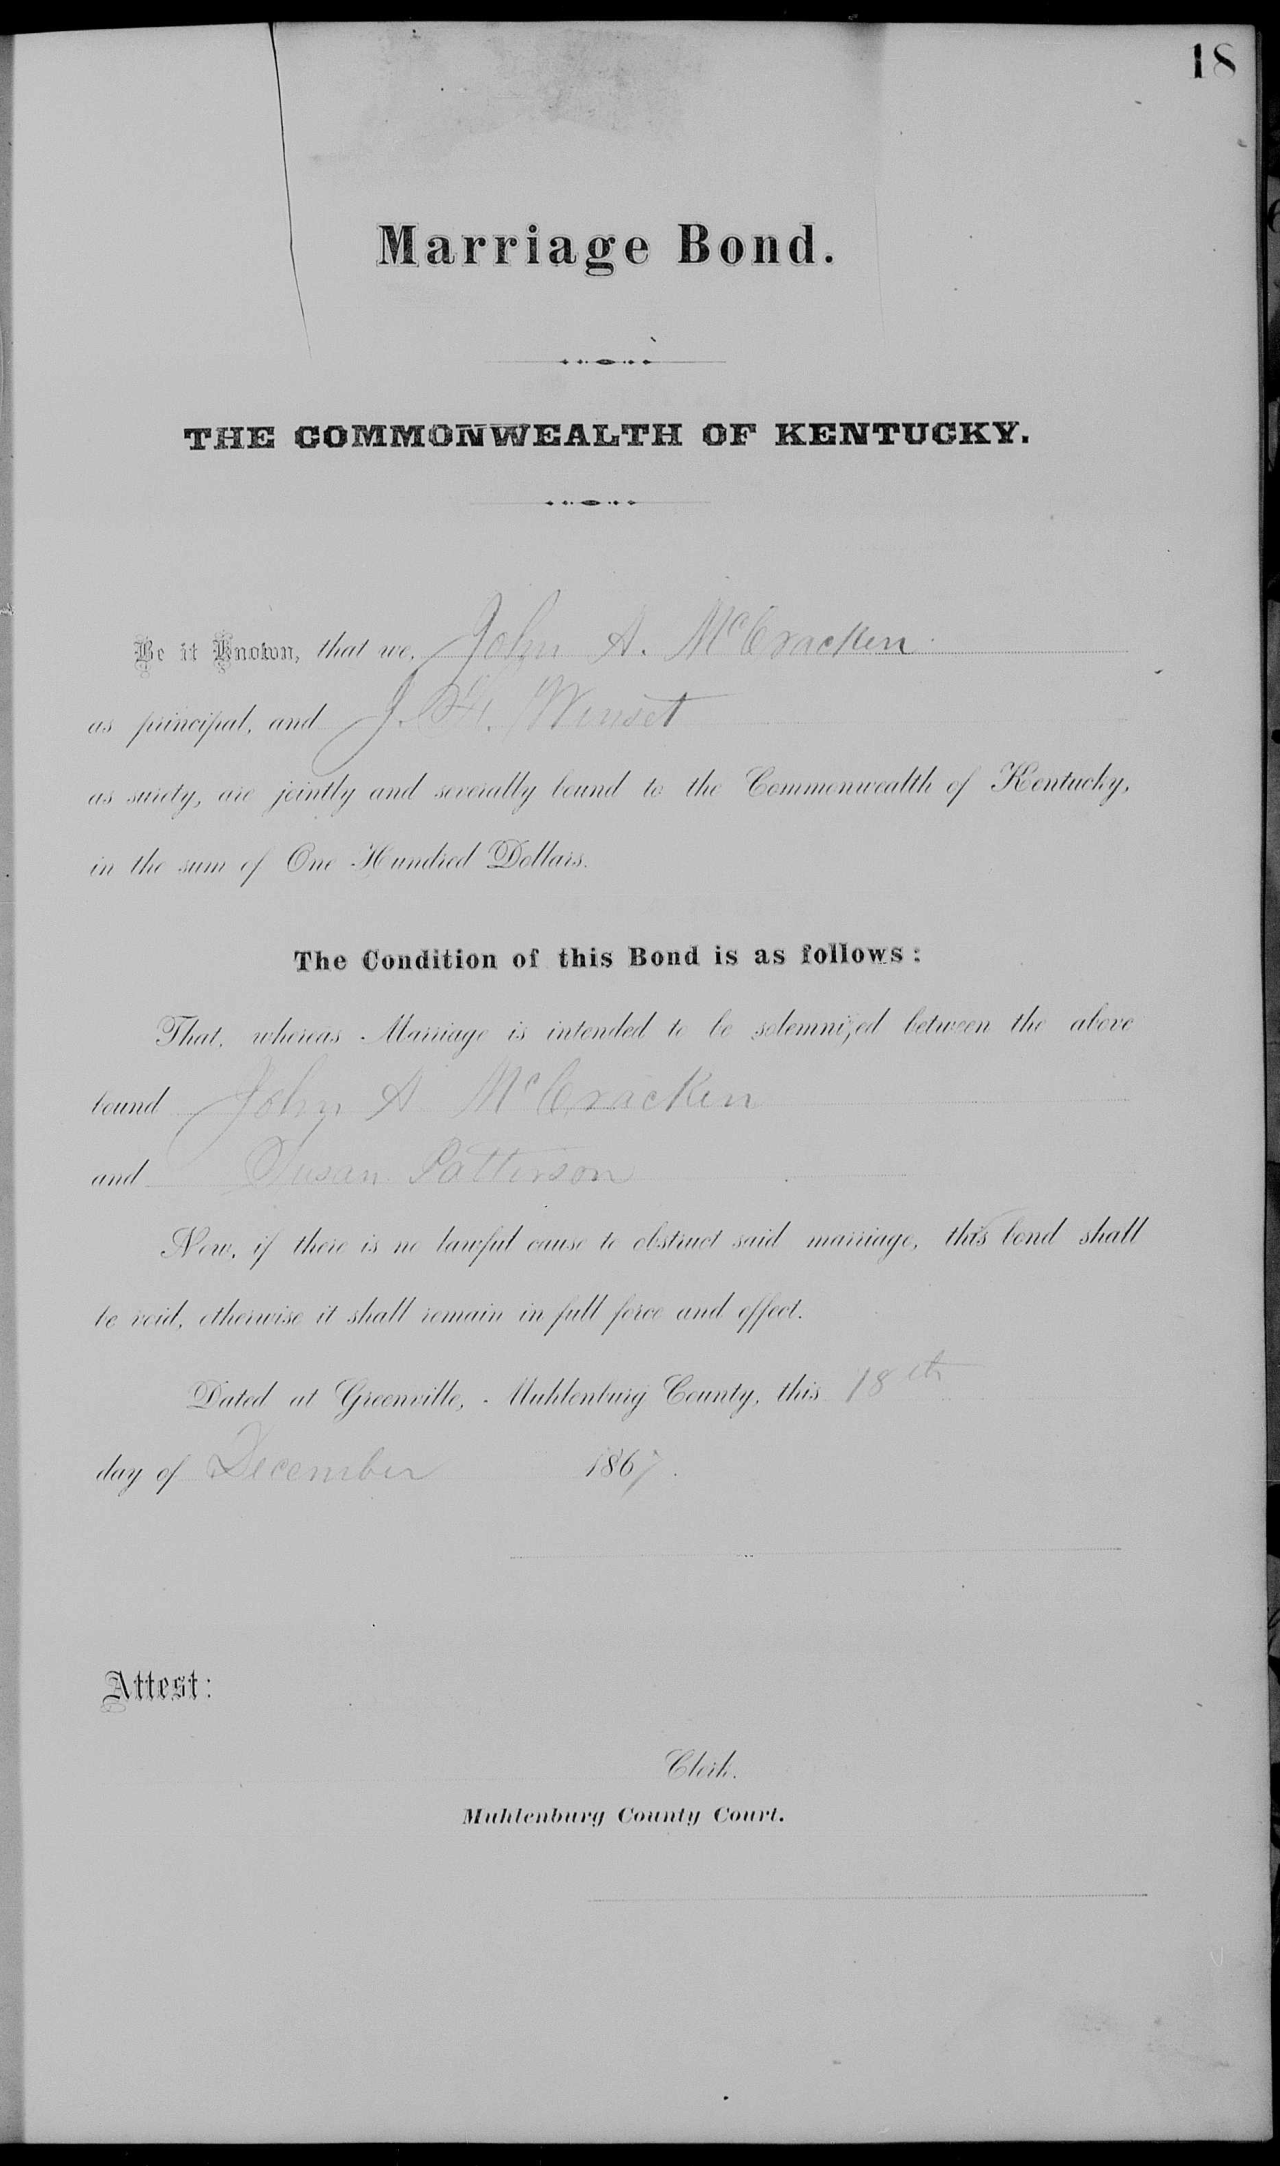 18
Marriage Bond.
THE COMMONWEALTH OF KENTUCKY.
Be it Known, that we, John A. McCracken
as principal, and J. F. Winset
as surety, are jointly and severally bound to the Commonwealth of Kentucky,
in the sum of One Hundred Dollars.
The Condition of this Bond is as follows:
That, whereas Marriage is intended to be solemnized between the above
bound John A McCracken
and Susan Patterson
Now, if there is no lawful cause to obstruct said marriage, this bond shall
be void, otherwise it shall remain in full force and effect.
Dated at Greenville, Muhlenburg County, this 18th
day of December 1867.
Attest:
Clerk.
Muhlenburg County Court.